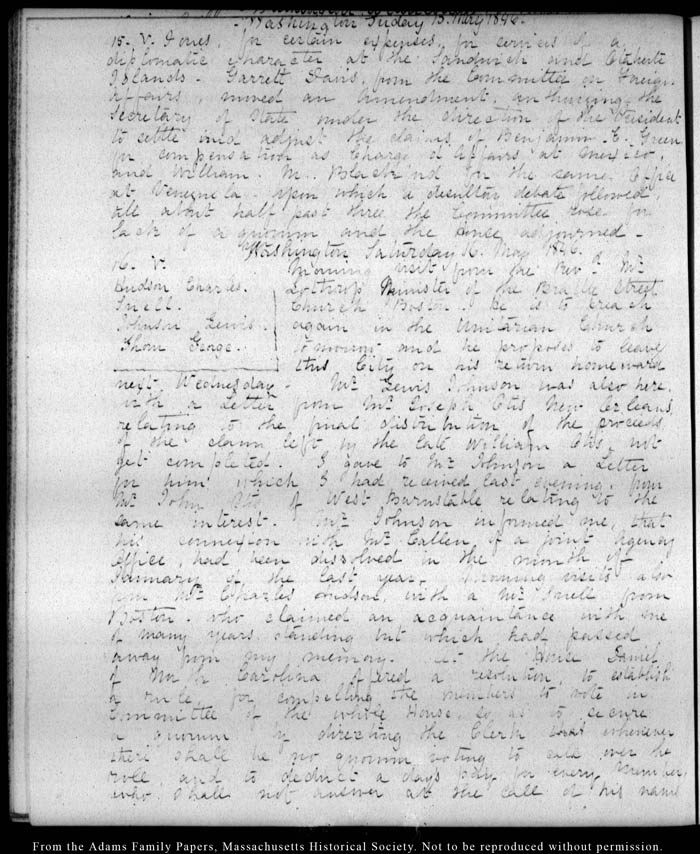 Washington Friday 15. May 1846.
15. V. Jones, for certain expenses, for services of a
diplomatic character at the Sandwich and Otaheite
Islands. Garrett Davis, from the Committee on Foreign
Affairs, moved an amendment, authorizing the
Secretary of State under the direction of the President
to settle and adjust the claims of Benjamin E. Green
for compensation as Chargé d'Affairs, at Mexico,
and William M. Blackford for the same Office
at Venezuela. upon which a desultory debate followed,
till about half past three the Committee rose for
lack of a quorum and the House adjourned.
Washington Saturday 16. May 1846.
16. V.
Hudson Charles.
Snell.
Johnson Lewis.
Thom George.
Morning visit from the Revd. Mr.
Lothrop Minister of the Brattle Street
Church, Boston. He is to preach
again in the Unitarian Church
tomorrow and he proposes to leave
this City on his return homeward
next Wednesday. Mr. Lewis Johnson was also here,
with a Letter from Mr. Joseph Otis New Orleans,
relating to the final distribution of the proceeds
of the claim left by the late William Otis, not
yet completed. I gave to Mr. Johnson a Letter
for him which I had received last evening from
Mr. John Otis of West Barnstable relating to the
same interest. Mr. Johnson informed me, that
his connexion with Mr. Callen, of a joint Agency
Office, had been dissolved in the month of
January of the last year. Morning visits also
from Mr. Charles Hudson, with a Mr. Snell from
Boston. who claimed an acquaintance with me
of many years standing but which had passed
away from my memory. At the House Daniel
of North Carolina offered a resolution, to establish
a rule, for compelling the members to vote in
Committee of the whole House, so as to secure
a quorum by directing the Clerk whenever
there shall be no quorum voting to call over the
role, and to deduct a days pay for every Member,
who shall not answer at the call of his name
From the Adams Family Papers, Massachusetts Historical Society. Not to be reproduced without permission.